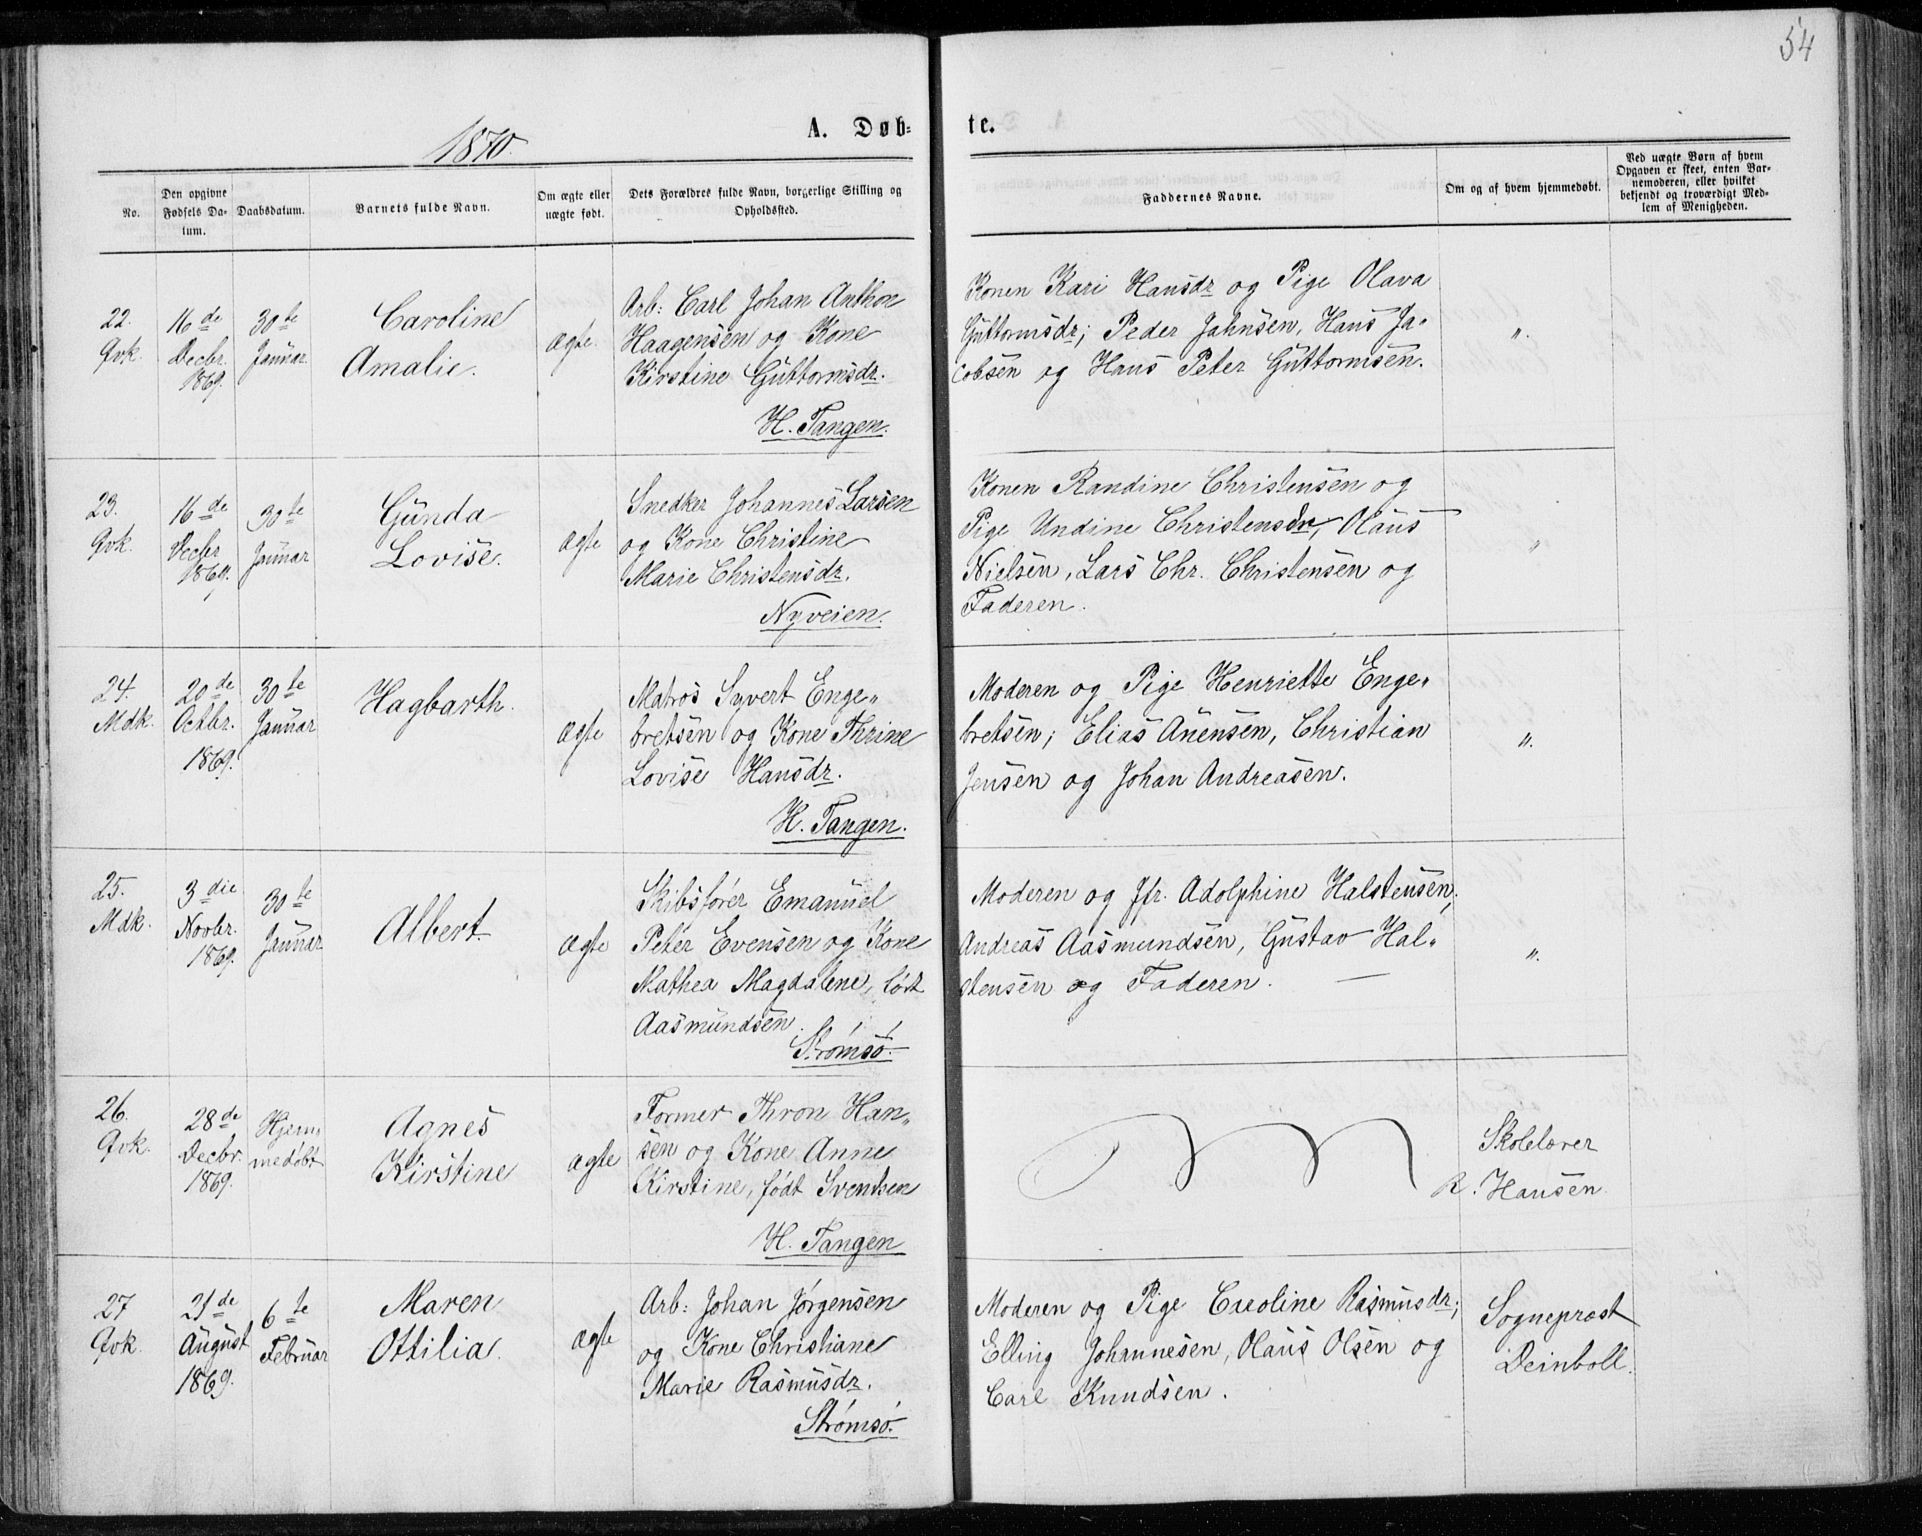 54
1870.
A. Døb-
te.
No.
Den opgivne
Fødsels Da-
tum.
Daabsdatum.
Barnets fulde Navn.
Om ægte eller
uægte født.
Dets Forældres fulde Navn, borgerlige Stilling og
Opholdssted.
Faddernes Navne.
Om og af hvem hjemmedøbt.
Ved uægte Børn af hvem
Opgaven er skeet, enten Bar-
nemoderen, eller hvilket
bekjendt og troværdigt Med-
lem af Menigheden.
22.
Qvk.
16de
Decbr.
1869.
30te
Januar
Caroline
Amalie.
ægte.
Arb: Carl Johan Anthon
Haagensen og Kone
Kirstine Guttormsdr.
H. Tangen.
Konen Kari Hansdr og Pige Olava
Guttormsdr; Peder Jahnsen, Hans Ja-
cobsen og Hans Peter Guttormsen.
".
23.
Qvk.
16de
Decbr
1869.
30te
Januar
Gunda
Lovise.
ægte
Snedker Johannes Larsen
og Kone Christine
Marie Christensdr.
Nyveien.
Konen Randine Christensen og
Pige Undine Christensdr, Olaus
Nielsen, Lars Chr. Christensen og
Faderen.
"
24.
Mdk.
20de
Octbr.
1869.
30te
Januar
Hagbarth.
ægte
Matros Syvert Enge-
bretsen og Kone Thrine
Lovise Hansdr.
H. Tangen.
Moderen og Pige Henriette Enge-
bretsen; Elias Anensen, Christian
Jensen og Johan Andreasen.
".
25.
Mdk.
3die
Novbr.
1869.
30te
Januar
Albert.
ægte
Skibsfører Emanuel
Peter Evensen og Kone
Mathea Magdalene, født
Aasmundsen.
Strømsø.
Moderen og Jfr. Adolphine Halstensen;
Andreas Aasmundsen, Gustav Hal-
stensen og Faderen.
".
26.
Qvk.
28de
Decbr.
1869.
Hjem-
medøbt
Agnes
Kirstine
ægte
Former Thron Han-
sen og Kone Anne
Kirstine, født Svendsen
H. Tangen
Skolelærer
R. Hansen.
27
Qvk.
21de
August
1869.
6te
Februar
Maren
Ottilia.
ægte
Arb: Johan Jørgensen
og Kone Christiane
Marie Rasmusdr.
Strømsø.
Moderen og Pige Caroline Rasmusdr;
Elling Johannesen, Olaus Olsen og
Carl Knudsen.
Sogneprest
Deinboll.